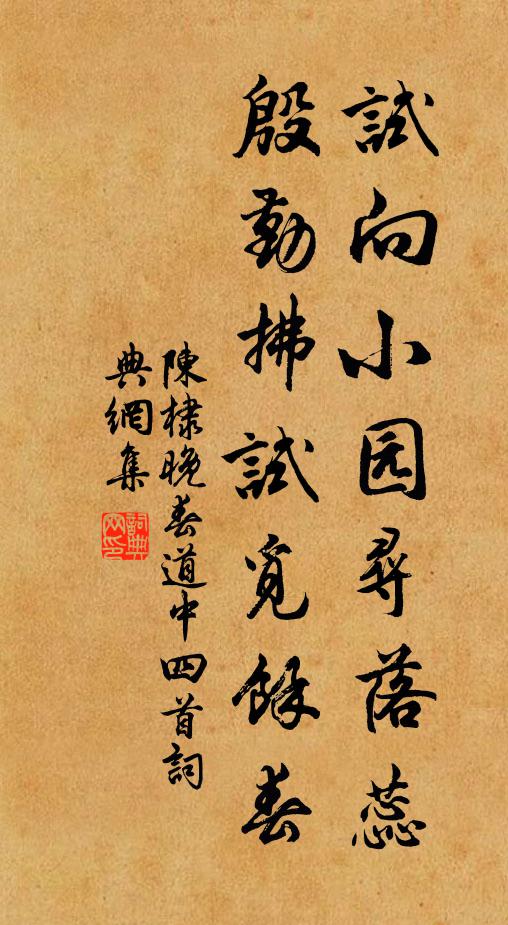 試向小园尋落蕊
殷勤拂試覓餘春
陳棣晚春道中四首詞
典網集
詞典网印